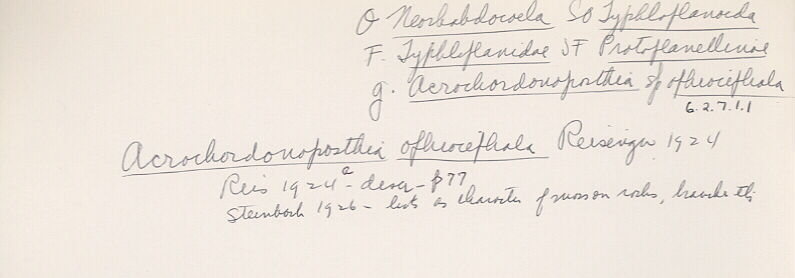 O Neorhabdocoela SO Typhloplanoida
F. Typhloplanidae SF Protoplanellinae
g. Acrochordonoposthia sp ophiocephala
6.2.7.1.1
Acrochordonoposthia ophiocephala Reisinger 1924
Reis 1924a - descr - p77
Steinbock 1926 - lists as character of moss on rocks,